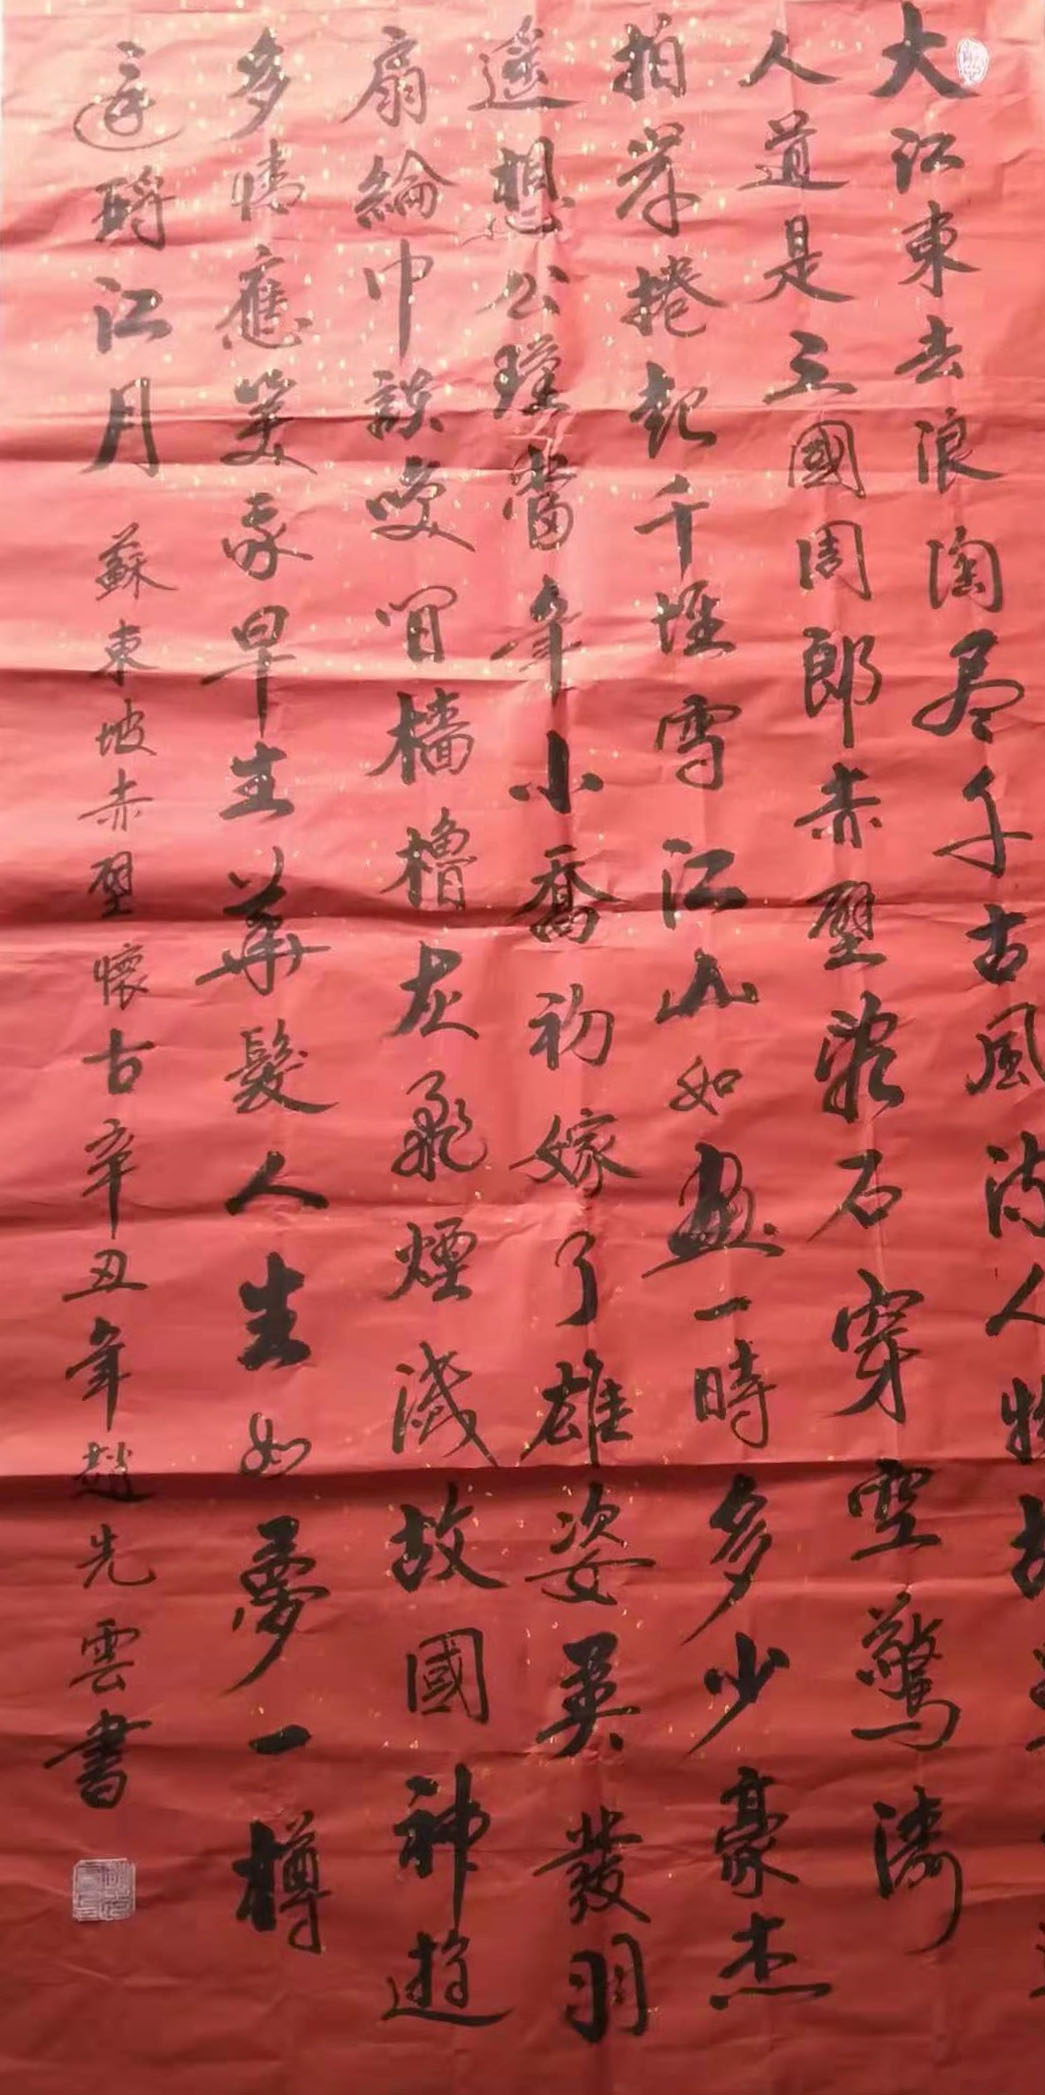 大江東去浪淘尽千古風流人物故
人道是三國周郎赤壁亂石穿空驚濤
拍岸捲起千堆雪江山如畫一時多少豪杰
遥想公瑾當年小喬初嫁了雄姿英發羽
扇綸巾談笑間檣櫓灰飛煙滅故國神遊
多情應笑我早生華髮人生如夢一樽
還酹江月 蘇東坡赤壁懷古辛丑年趙先雲書